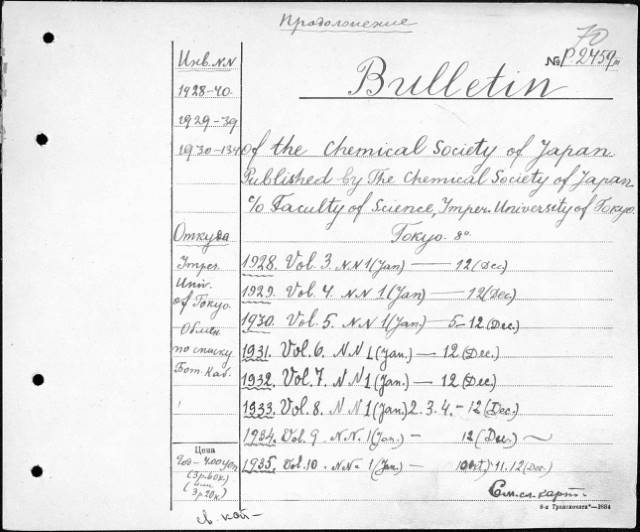 Продолжение
70
№ P. 2459
Инв. N.N
Bulletin
1928-40.
1929-39
1930-134
of the Chemical Society of Japan.
Published by The Chemical Society of Japan
c/o Faculty of Science, Imper. University of Tokyo.
Tokyo. 8°.
Откуда
Imper.
Univ.
of Tokyo.
Обмен
по списку
Бот. Каб.
1928. Vol. 3. N N 1 (Jan) — 12 (Dec)
1929. Vol. 4. N N 1 (Jan) — 12 (Dec)
1930. Vol. 5. N N 1 (Jan) — 5-12 (Dec.)
1931. Vol. 6. N N 1 (Jan.) — 12 (Dec.)
1932. Vol. 7. N N 1 (Jan.) — 12 (Dec.)
1933. Vol. 8. N N 1 (Jan.) 2. 3. 4. - 12 (Dec.)
1934. Vol. 9 N. N. 1 (Jan) - 12 (Dec.) ~
1935. Vol. 10. N. N. 1 (Jan) - 11. 12 (Dec)
Цена
(3 р. 60 к.)
(или
3 р. 20 к.)
См. сл. карт.
8-я Транспечать—3884